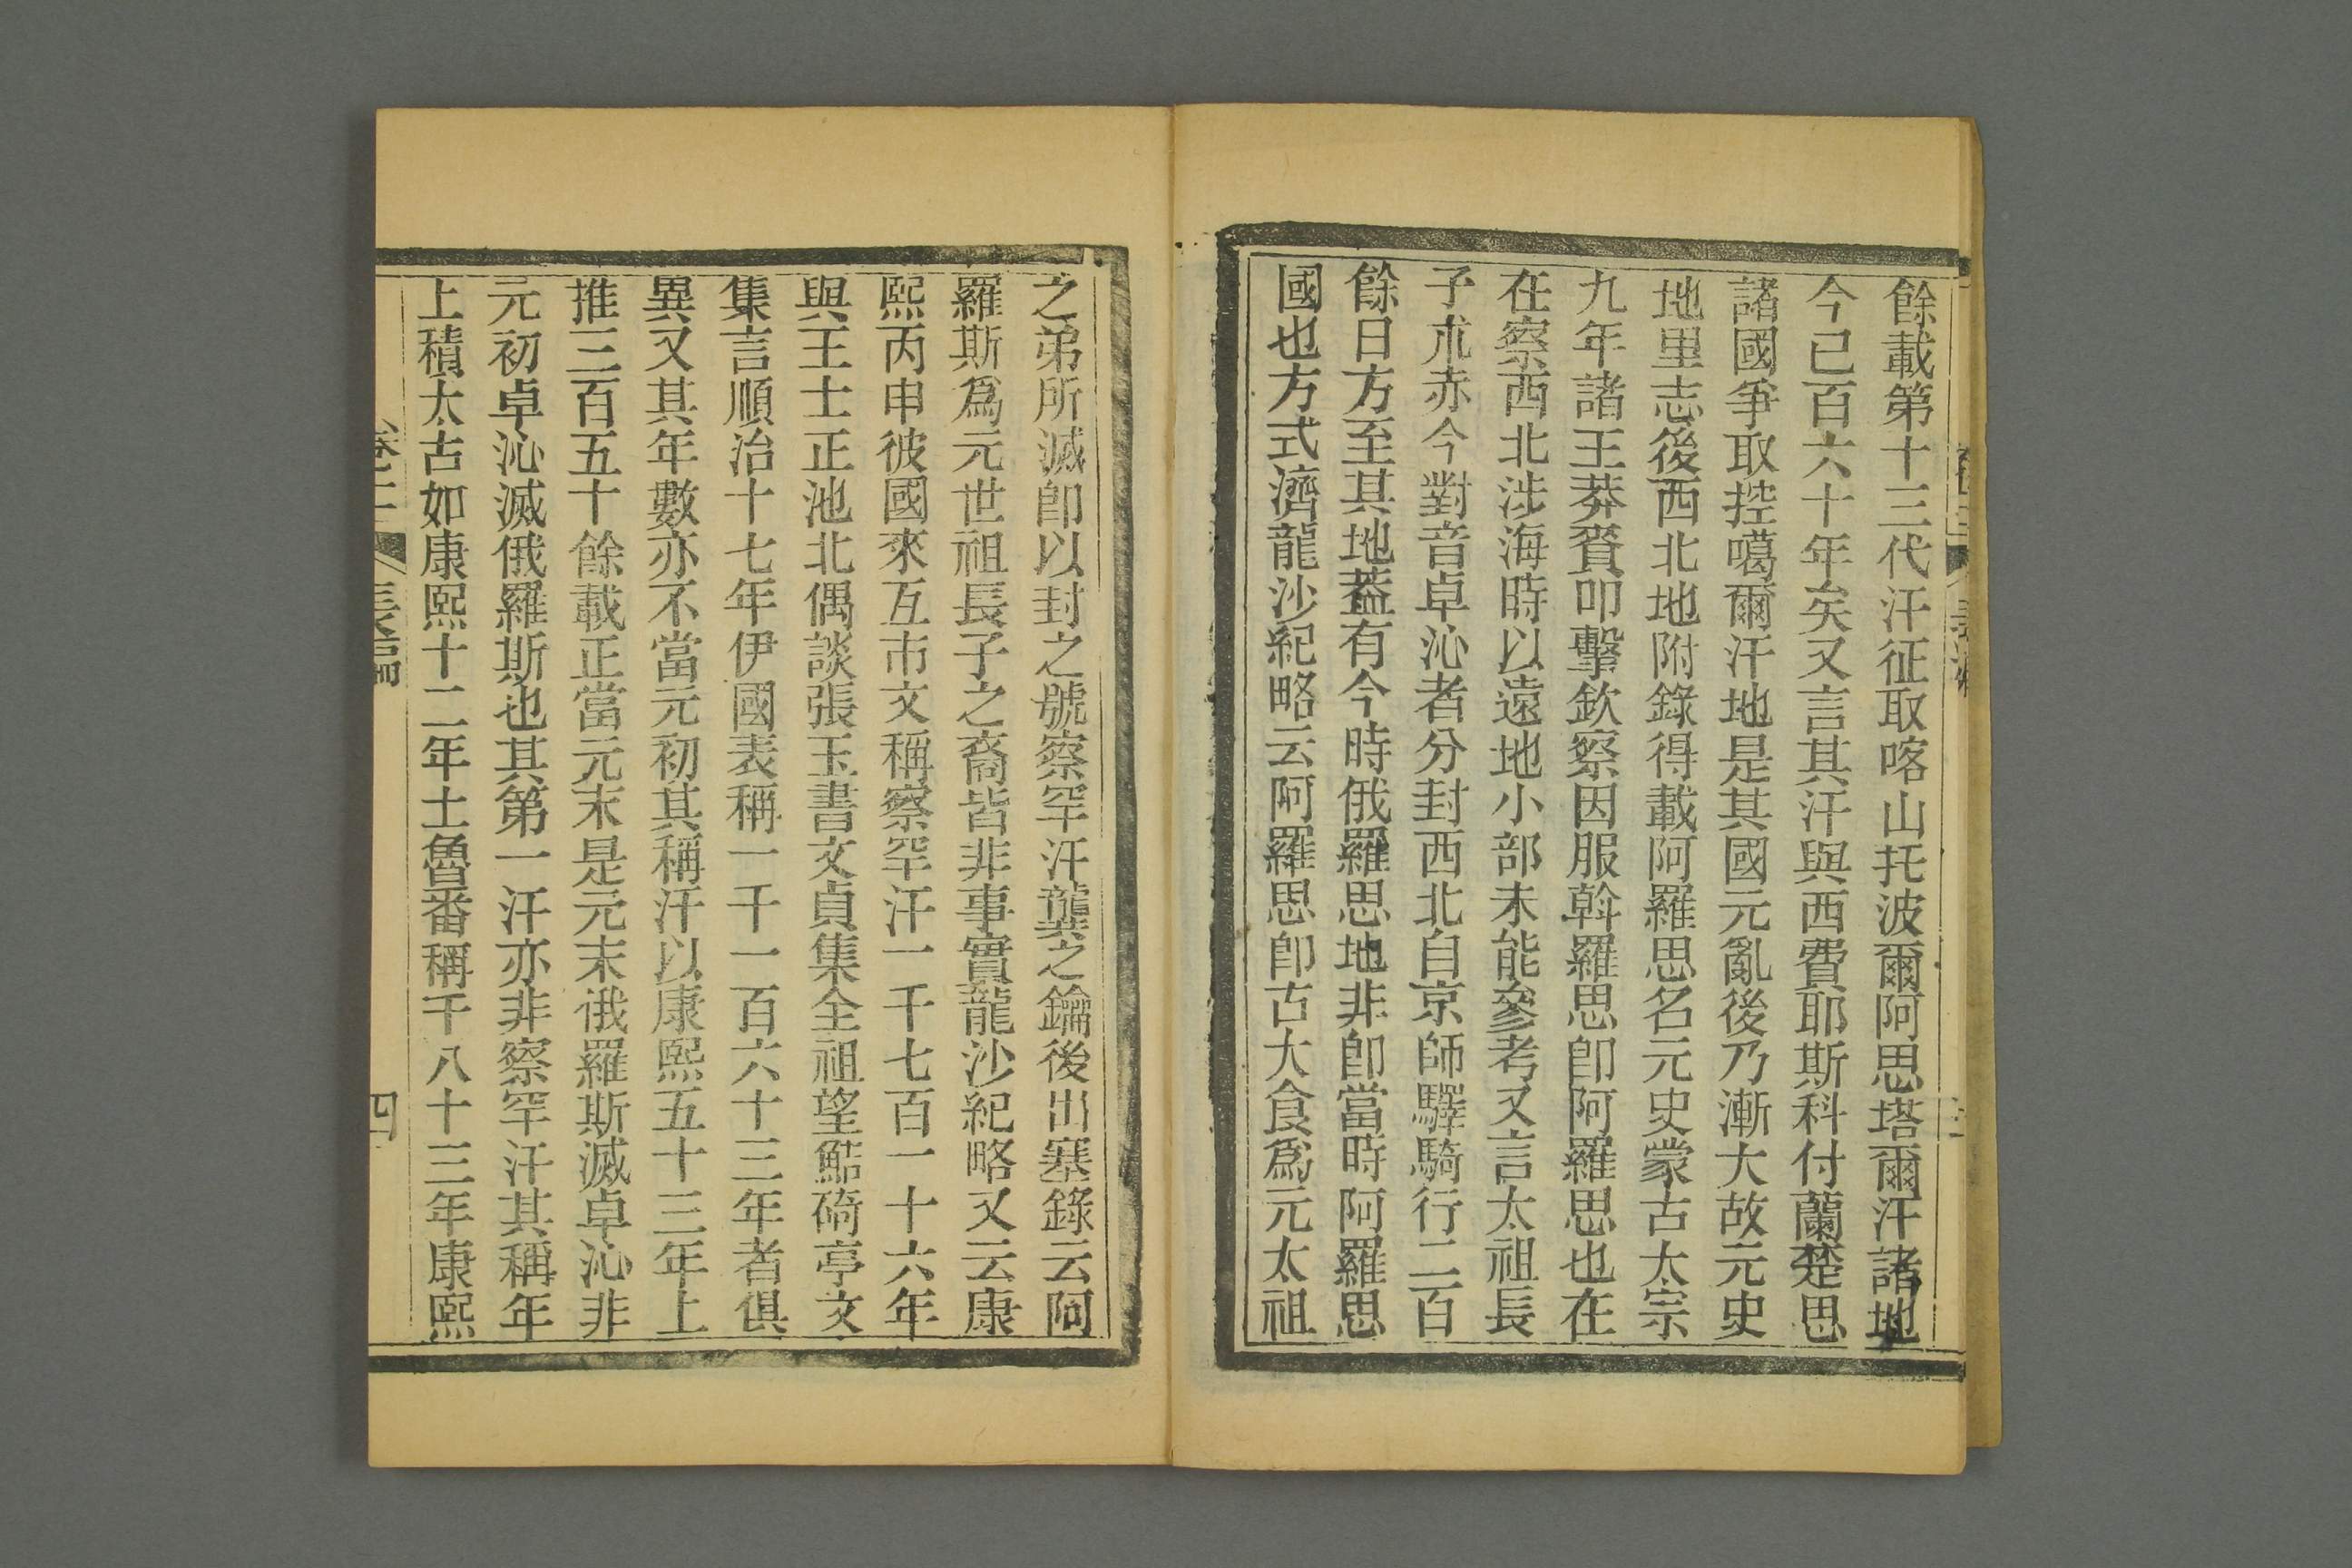 餘載第十三代汗征取喀山托波爾阿思塔爾汗諸地
今已百六十年矣又言其汗與西費耶斯科付蘭楚思
諸國爭取控噶爾汗地是其國元亂後乃漸大故元史
地里志後西北地附錄得載阿羅思名元史蒙古太宗
九年諸王莽賚叩擊欽察因服斡羅思卽阿羅思也在
在察西北涉海時以遠地小部未能參考又言太祖長
子朮赤今對音卓沁者分封西北自京師驛騎行二百
餘日方至其地蓋有今時俄羅思地非卽當時阿羅思
國也方式濟龍沙紀略云阿羅思卽古大食爲元太祖
之弟所滅卽以封之號察罕汗龔之鑰後出塞錄云阿
羅斯爲元世祖長子之裔皆非事實龍沙紀略又云康
熙丙申彼國來互市文稱察罕汗一千七百一十六年
與王士正池北偶談張玉書文貞集全祖望鮚碕亭文
集言順治十七年伊國表稱一千一百六十三年者俱
異又其年數亦不當元初其稱汗以康熙五十三年上
推三百五十餘載正當元末是元末俄羅斯滅卓沁非
元初卓沁滅俄羅斯也其第一汗亦非察罕汗其稱年
上積太古如康熙十二年土魯番稱千八十三年康熙
四